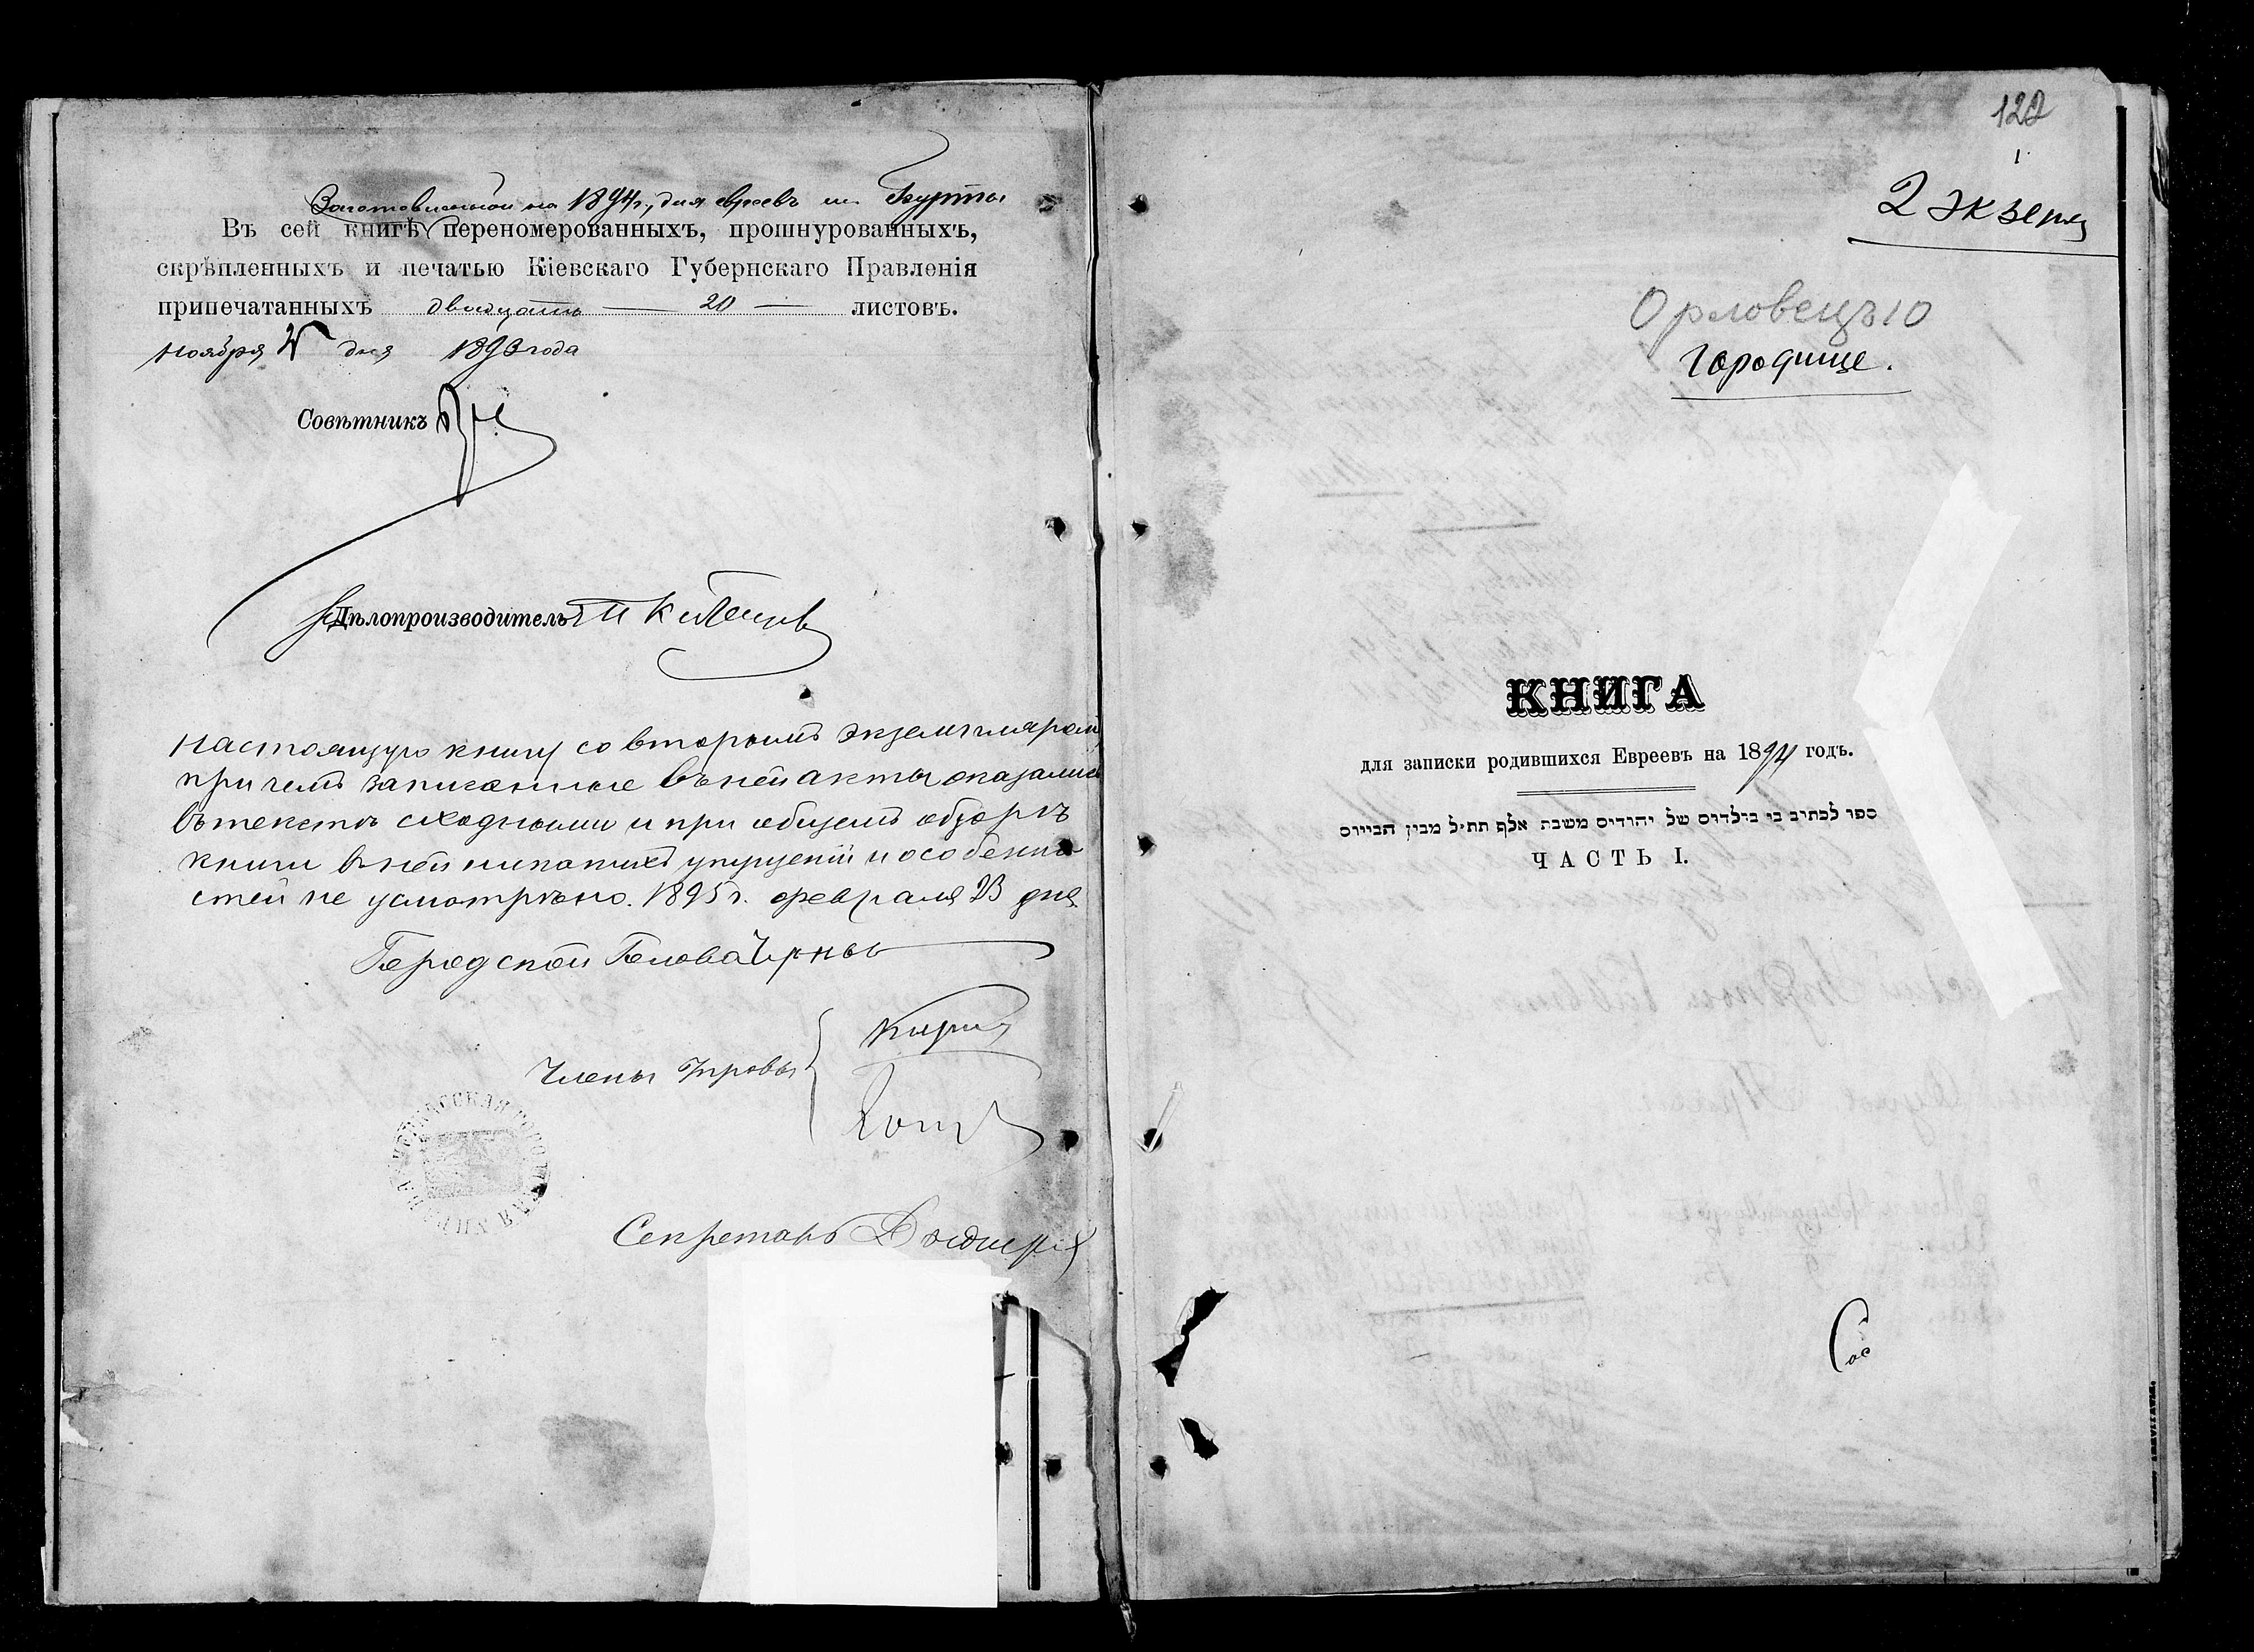 Заготовленной на 1894 г., для евреевъ м. Бурты
Въ сей книгѣ переномерованныхъ, прошнурованныхъ,
скрѣпленныхъ и печатью Кіевскаго Губернскаго Правленія
припечатанныхъ двадцать — 20 — листовъ.
Ноября дня 1893 года
Совѣтникъ
Дѣлопроизводитель
Настоящую книгу со вторымъ экземпляромъ
причемъ записанные въ ней акты оказались
въ текстѣ сходными и при общемъ обзорѣ
книги въ ней никакихъ упущеній и особенно-
стей не усмотрѣно. 1895 г. февраля 23 дня
Городской Голова
Члены Управы
Секретарь
122
1
2 экземп
Орловецъ 10
Городище.
КНИГА
для записки родившихся Евреевъ на 1894 годъ.
ספר לכתוב בו הילדים של יהודים משנת אלף תת״ל מבין הביירים
ЧАСТЬ I.